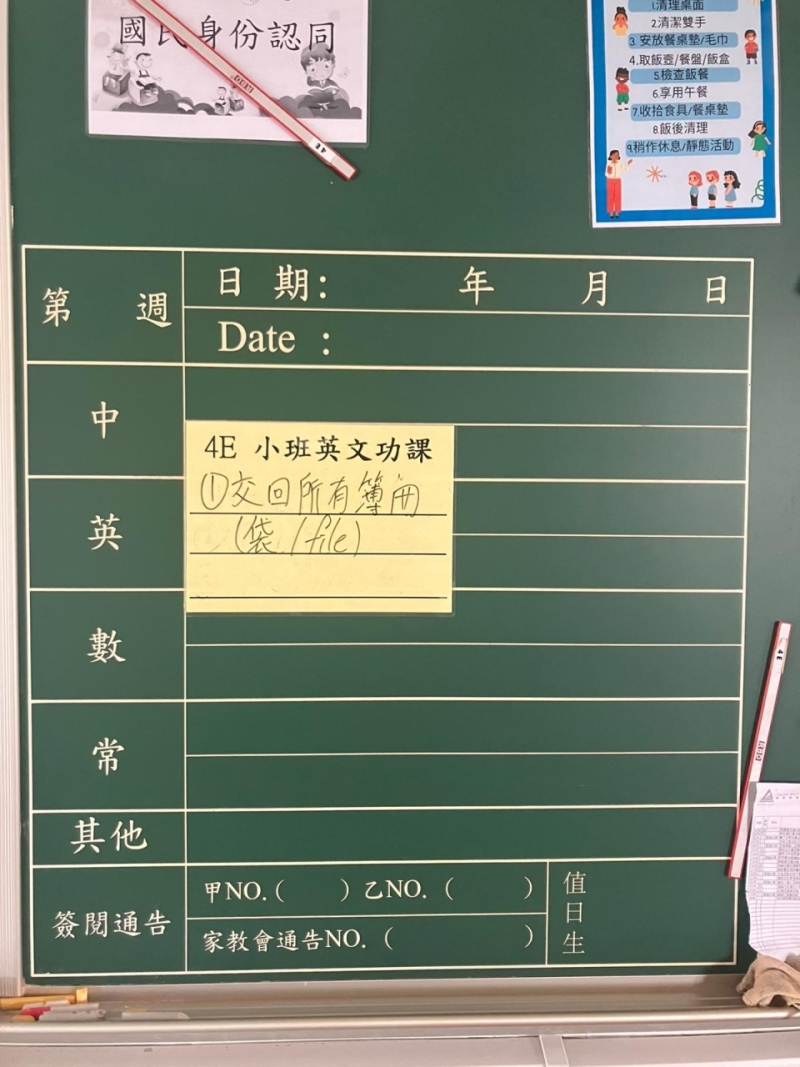 國民身份認同
4E
1.清理桌面
2.清潔雙手
3.安放餐桌墊/毛巾
4.取飯壺/餐盤/飯盒
5.檢查飯餐
6.享用午餐
7.收拾食具/餐桌墊
8.飯後清理
9.稍作休息/靜態活動
第 週
日 期: 年 月 日
Date :
中
4E 小班英文功課
①交回所有簿冊
(袋 / file)
英
數
4E
常
其他
簽閱通告
甲NO.( ) 乙NO. ( )
家教會通告NO. ( )
值日生